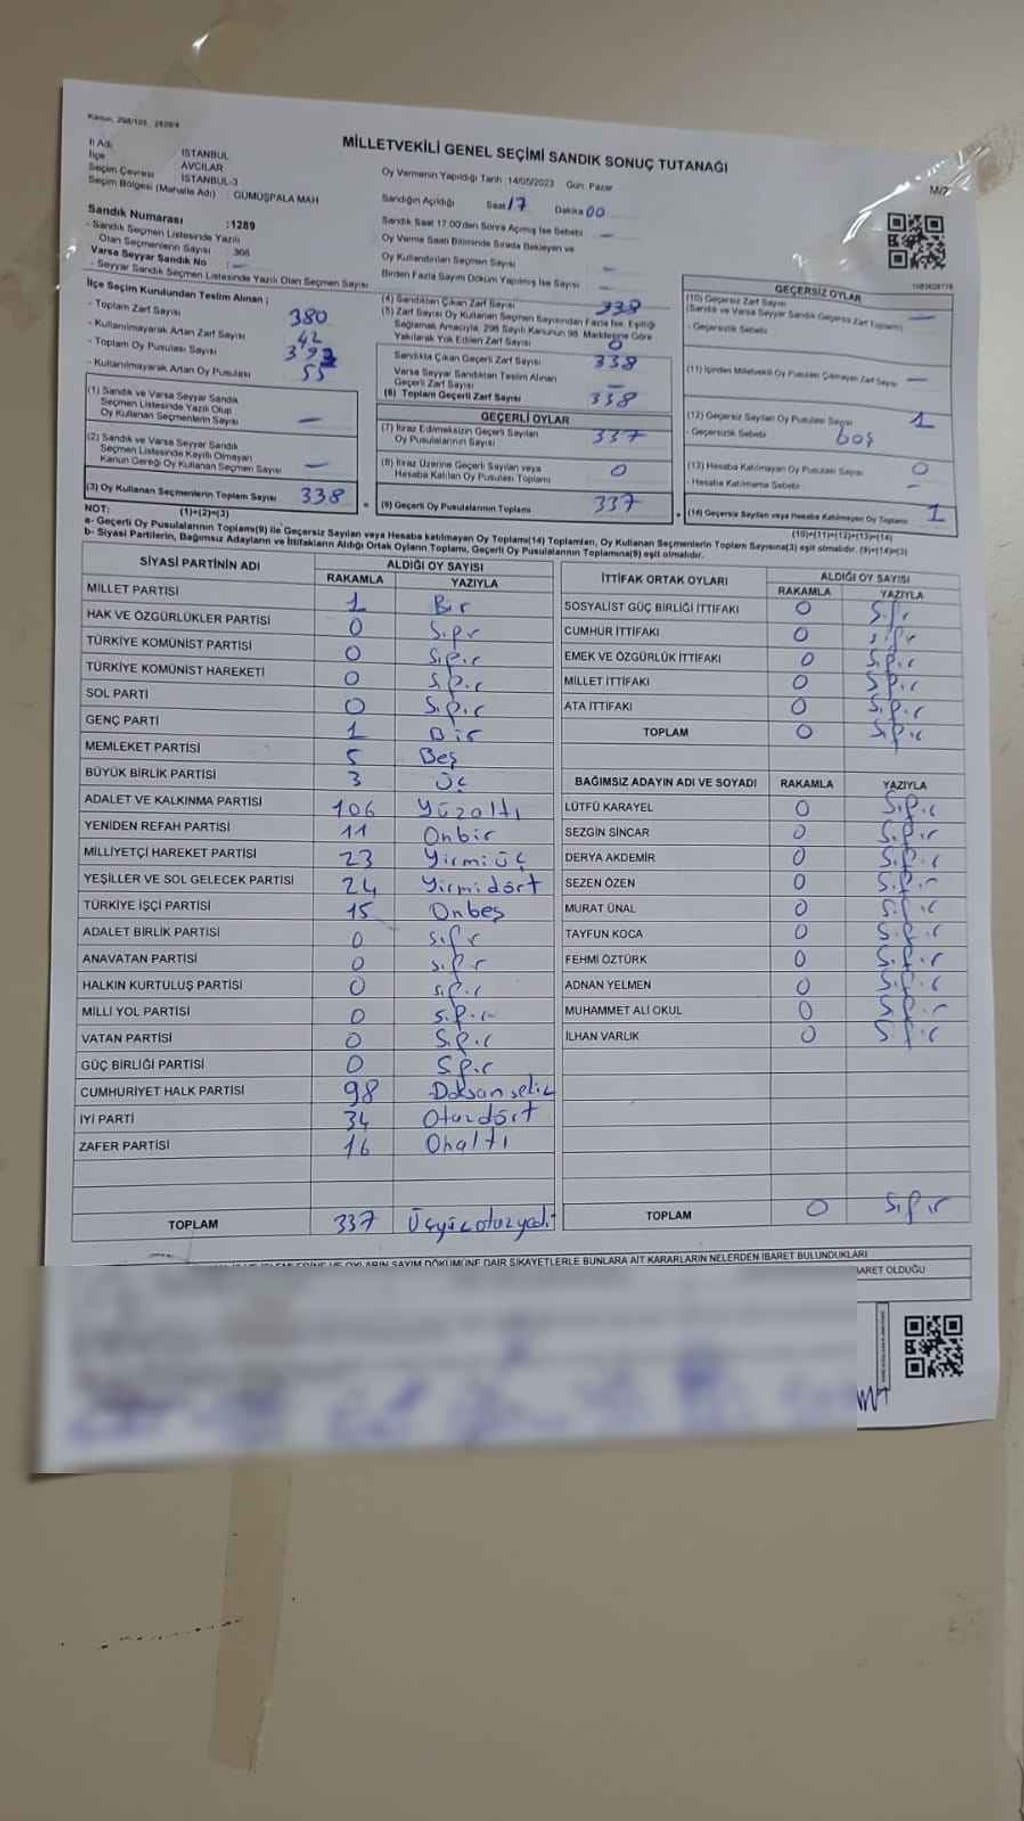 MİLLETVEKİLİ GENEL SEÇİMİ SANDIK SONUÇ TUTANAĞI
M/2
İl Adı : İSTANBUL
İlçe : AVCILAR
Seçim Çevresi : İSTANBUL-3
Seçim Bölgesi (Mahalle Adı) : GÜMÜŞPALA MAH
Sandık Numarası : 1289
- Sandık Seçmen Listesinde Yazılı
Olan Seçmenlerin Sayısı
Varsa Seyyar Sandık No : —
- Seyyar Sandık Seçmen Listesinde Yazılı Olan Seçmen Sayısı
Oy Vermenin Yapıldığı Tarih :14/05/2023 Gün: Pazar
Sandığın Açıldığı Saat 17 Dakika 00
Sandık Saat 17.00'den Sonra Açılmış İse Sebebi —
Oy Verme Saati Bitiminde Sırada Bekleyen ve
Oy Kullandırılan Seçmen Sayısı —
Birden Fazla Sayım Döküm Yapılmış İse Sayısı —
İlçe Seçim Kurulundan Teslim Alınan ;
- Toplam Zarf Sayısı 380
- Kullanılmayarak Artan Zarf Sayısı 42
- Toplam Oy Pusulası Sayısı
- Kullanılmayarak Artan Oy Pusulası 55
(1) Sandık ve Varsa Seyyar Sandık
Seçmen Listesinde Yazılı Olup
Oy Kullanan Seçmenlerin Sayısı —
(2) Sandık ve Varsa Seyyar Sandık
Seçmen Listesinde Kayıtlı Olmayan
Kanun Gereği Oy Kullanan Seçmen Sayısı —
(3) Oy Kullanan Seçmenlerin Toplam Sayısı 338
(4) Sandıktan Çıkan Zarf Sayısı 338
(5) Zarf Sayısı Oy Kullanan Seçmen Sayısından Fazla İse, Eşitliği
Sağlamak Amacıyla, 298 Sayılı Kanunun 98. Maddesine Göre
Yakılarak Yok Edilen Zarf Sayısı 0
Sandıkta Çıkan Geçerli Zarf Sayısı 338
Varsa Seyyar Sandıktan Teslim Alınan
Geçerli Zarf Sayısı —
(6) Toplam Geçerli Zarf Sayısı 338
GEÇERLİ OYLAR
(7) İtiraz Edilmeksizin Geçerli Sayılan
Oy Pusulalarının Sayısı 337
(8) İtiraz Üzerine Geçerli Sayılan veya
Hesaba Katılan Oy Pusulası Toplamı 0
(9) Geçerli Oy Pusulalarının Toplamı 337
GEÇERSİZ OYLAR
(10) Geçersiz Zarf Sayısı
(Sandık ve Varsa Seyyar Sandık Geçersiz Zarf Toplamı) —
- Geçersizlik Sebebi
(11) İçinden Milletvekili Oy Pusulası Çıkmayan Zarf Sayısı —
(12) Geçersiz Sayılan Oy Pusulası Sayısı 1
- Geçersizlik Sebebi boş
(13) Hesaba Katılmayan Oy Pusulası Sayısı 0
- Hesaba Katılmama Sebebi —
(14) Geçersiz Sayılan veya Hesaba Katılmayan Oy Toplamı 1
NOT: (1)+(2)=(3) (10)+(11)+(12)+(13)=(14)
a- Geçerli Oy Pusulalarının Toplamı(9) ile Geçersiz Sayılan veya Hesaba katılmayan Oy Toplamı(14) Toplamları, Oy Kullanan Seçmenlerin Toplam Sayısına(3) eşit olmalıdır. (9)+(14)=(3)
b- Siyasi Partilerin, Bağımsız Adayların ve İttifakların Aldığı Ortak Oyların Toplamı, Geçerli Oy Pusulalarının Toplamına(9) eşit olmalıdır.
SİYASİ PARTİNİN ADI ALDIĞI OY SAYISI
RAKAMLA YAZIYLA
MİLLET PARTİSİ 1 Bir
HAK VE ÖZGÜRLÜKLER PARTİSİ 0 Sıfır
TÜRKİYE KOMÜNİST PARTİSİ 0 Sıfır
TÜRKİYE KOMÜNİST HAREKETİ 0 Sıfır
SOL PARTİ 0 Sıfır
GENÇ PARTİ 1 Bir
MEMLEKET PARTİSİ 5 Beş
BÜYÜK BİRLİK PARTİSİ 3 Üç
ADALET VE KALKINMA PARTİSİ 106 Yüzaltı
YENİDEN REFAH PARTİSİ 11 Onbir
MİLLİYETÇİ HAREKET PARTİSİ 23 Yirmiüç
YEŞİLLER VE SOL GELECEK PARTİSİ 24 Yirmidört
TÜRKİYE İŞÇİ PARTİSİ 15 Onbeş
ADALET BİRLİK PARTİSİ 0 sıfır
ANAVATAN PARTİSİ 0 sıfır
HALKIN KURTULUŞ PARTİSİ 0 sıfır
MİLLİ YOL PARTİSİ 0 sıfır
VATAN PARTİSİ 0 Sıfır
GÜÇ BİRLİĞİ PARTİSİ 0 Sıfır
CUMHURİYET HALK PARTİSİ 98 Doksansekiz
İYİ PARTİ 34 Otuzdört
ZAFER PARTİSİ 16 Onaltı
TOPLAM 337 Üçyüzotuzyedi
İTTİFAK ORTAK OYLARI ALDIĞI OY SAYISI
RAKAMLA YAZIYLA
SOSYALİST GÜÇ BİRLİĞİ İTTİFAKI 0 Sıfır
CUMHUR İTTİFAKI 0 sıfır
EMEK VE ÖZGÜRLÜK İTTİFAKI 0 Sıfır
MİLLET İTTİFAKI 0 Sıfır
ATA İTTİFAKI 0 Sıfır
TOPLAM 0 Sıfır
BAĞIMSIZ ADAYIN ADI VE SOYADI RAKAMLA YAZIYLA
LÜTFÜ KARAYEL 0 Sıfır
SEZGİN SİNCAR 0 Sıfır
DERYA AKDEMİR 0 Sıfır
SEZEN ÖZEN 0 Sıfır
MURAT ÜNAL 0 Sıfır
TAYFUN KOCA 0 Sıfır
FEHMİ ÖZTÜRK 0 Sıfır
ADNAN YELMEN 0 Sıfır
MUHAMMET ALİ OKUL 0 Sıfır
İLHAN VARLIK 0 Sıfır
TOPLAM 0 Sıfır
SAYIM DÖKÜMÜNE DAİR ŞİKAYETLERLE BUNLARA AİT KARARLARIN NELERDEN İBARET BULUNDUKLARI
OLDUĞU